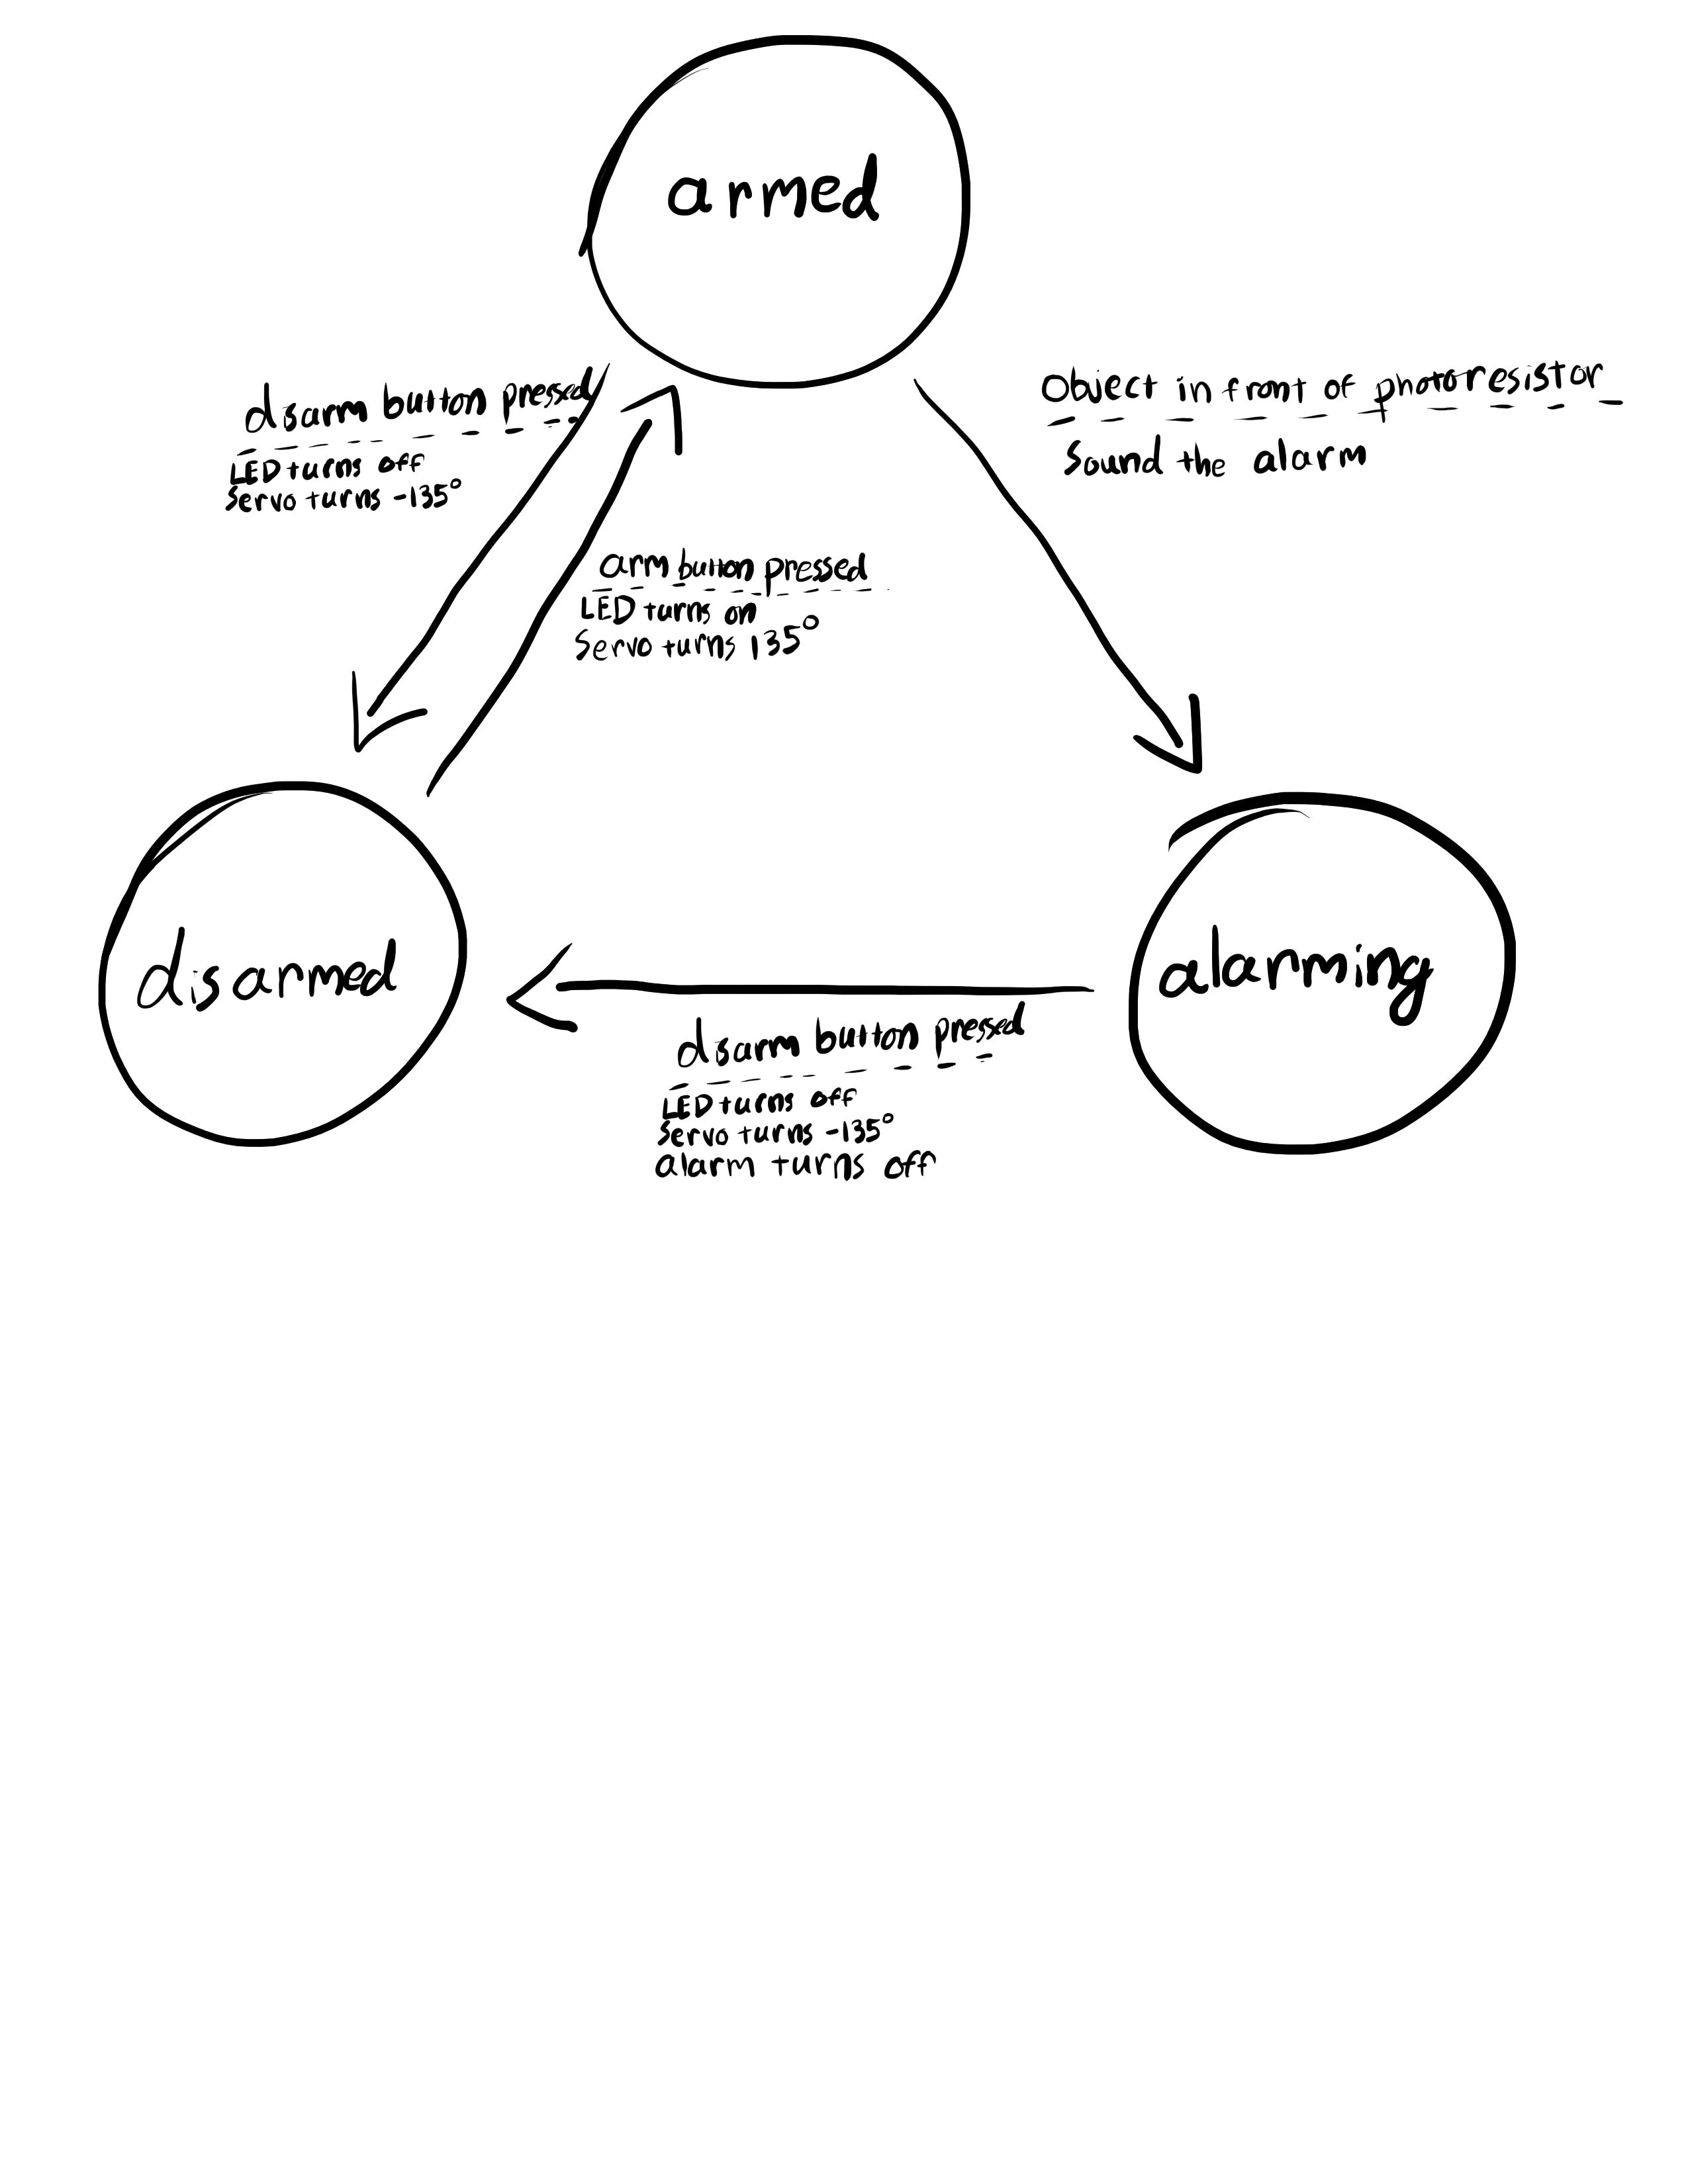 armed
disarm button pressed
LED turns off
Servo turns -135°
Object in front of photoresistor
Sound the alarm
arm button pressed
LED turns on
Servo turns 135°
disarmed
alarming
disarm button pressed
LED turns off
Servo turns -135°
alarm turns off